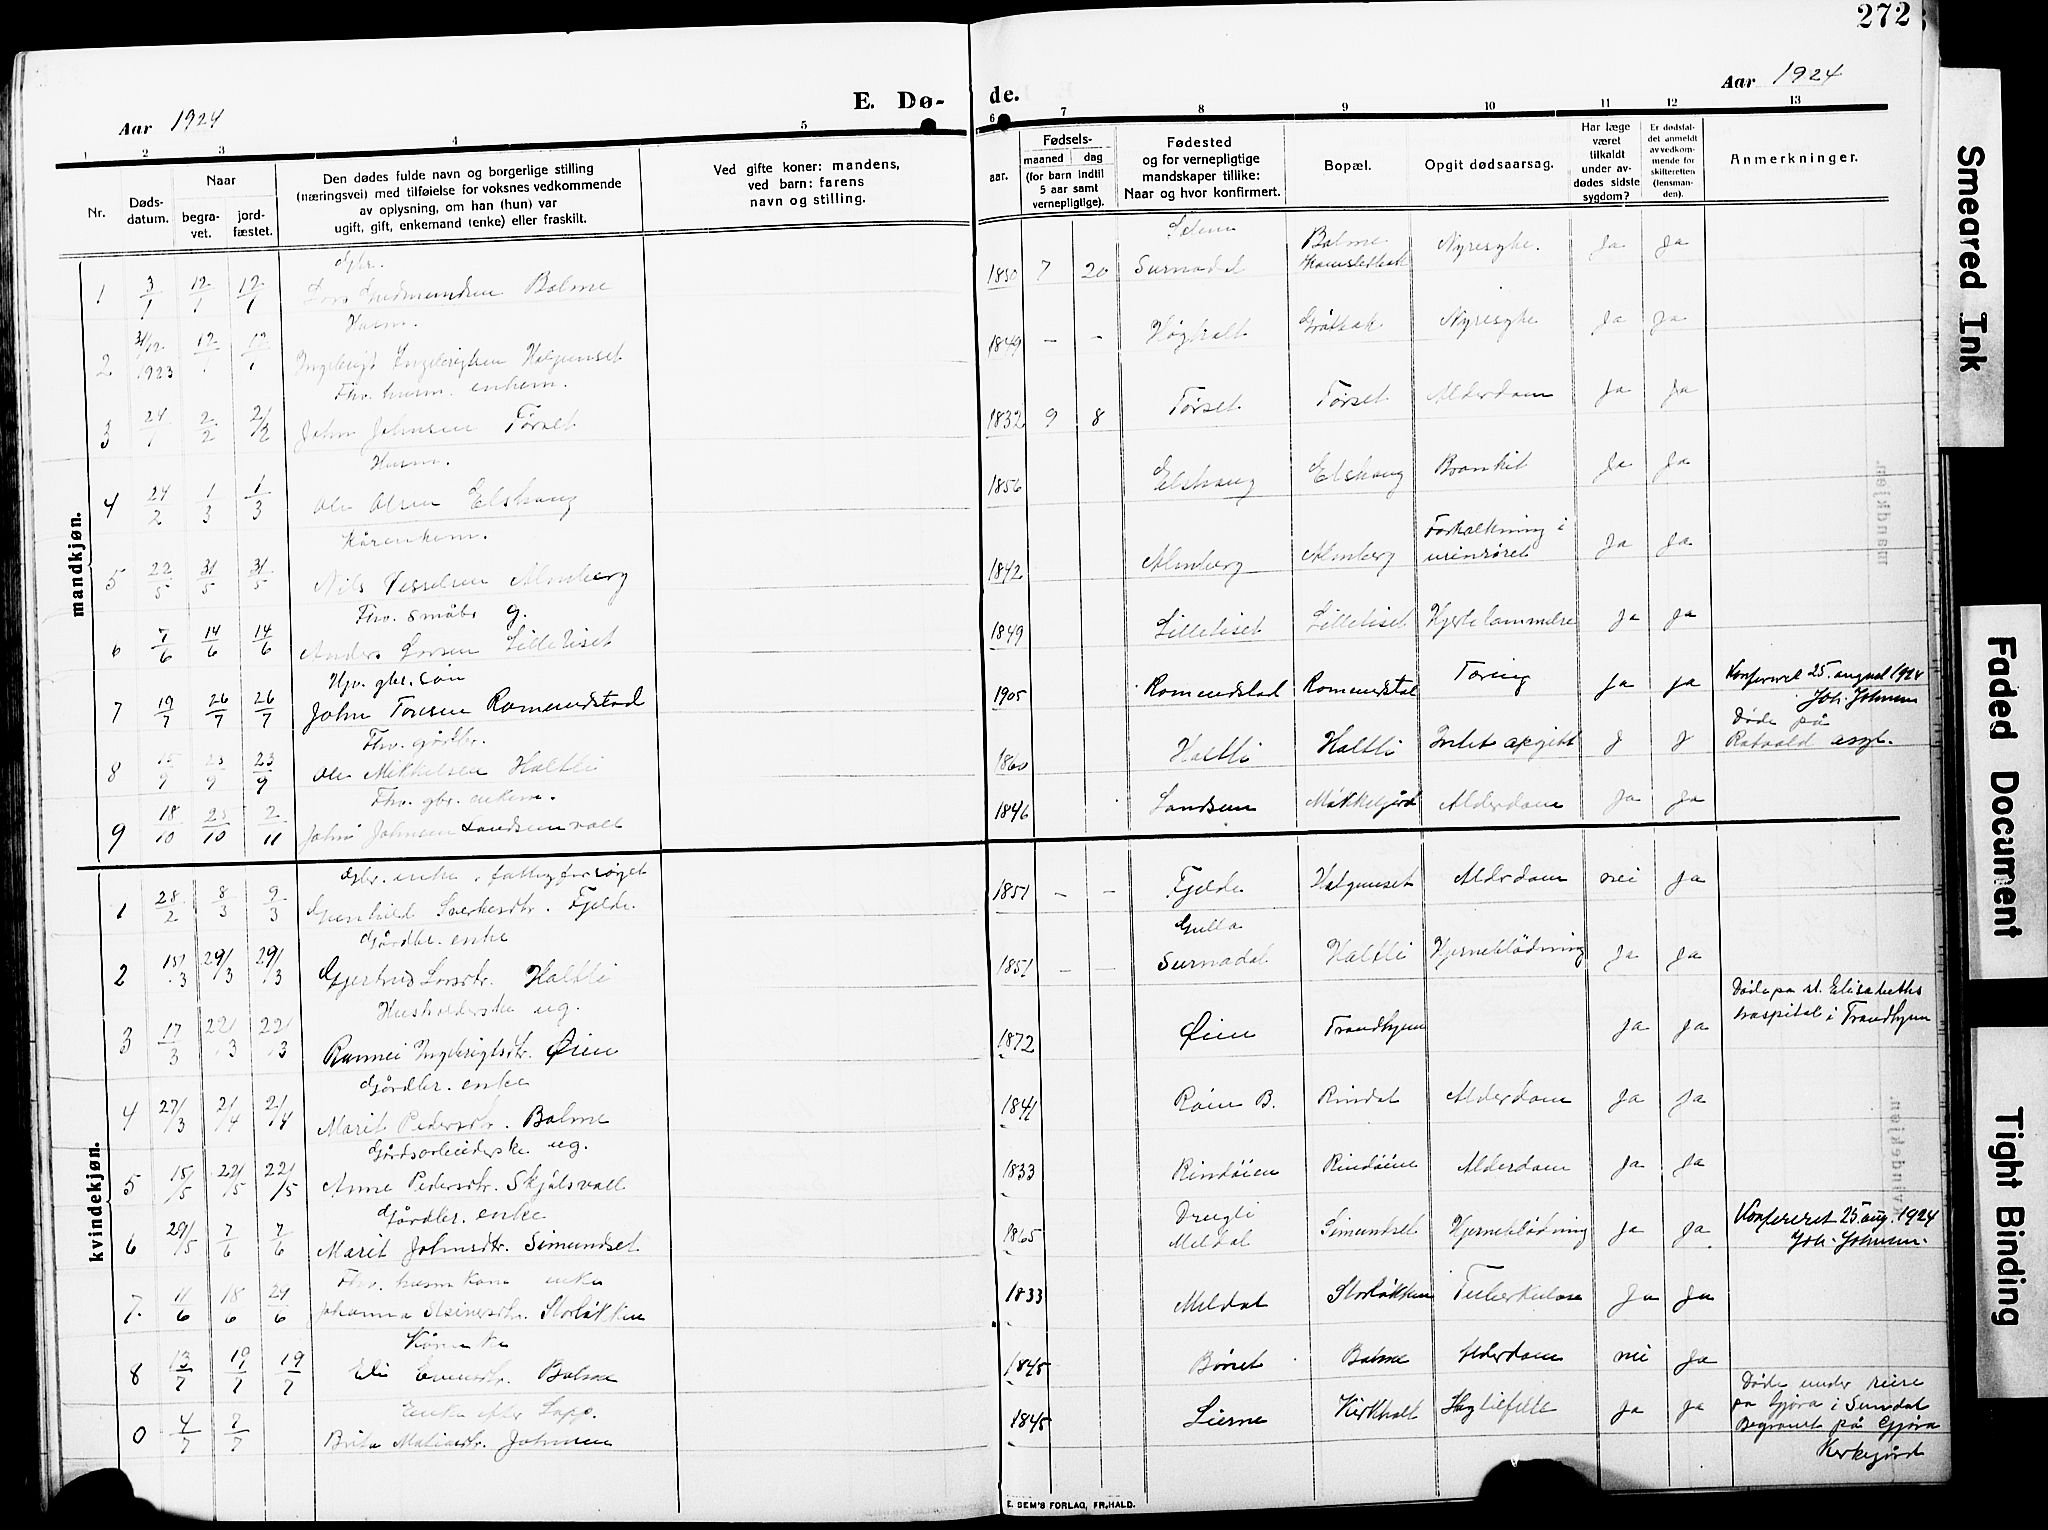 272
Aar 1924
E. Dø-
de.
Aar 1924
1 2 3 4 5 6 7 8 9 10 11 12 13
Nr.
Døds-
datum.
Naar
begra-
vet.
jord-
fæstet.
Den dødes fulde navn og borgerlige stilling
(næringsvei) med tilføielse for voksnes vedkommende
av oplysning, om han (hun) var
ugift, gift, enkemand (enke) eller fraskilt.
Ved gifte koner: mandens,
ved barn: farens
navn og stilling.
Fødsels-
aar.
maaned dag
(for barn indtil
5 aar samt
vernepligtige).
Fødested
og for vernepligtige
mandskaper tillike:
Naar og hvor konfirmert.
Bopæl.
Opgit dødsaarsag.
Har læge
været
tilkaldt
under av-
dødes sidste
sygdom?
Er dødsfal-
det anmeldt
av vedkom-
mende for
skifteretten
(lensman-
den).
Anmerkninger.
mandkjøn.
Gbr.
1 3/1 12/1 12/1 Balme 1850 7 20 Surnadal Balme Nyresyke. Ja Ja
Husm.
2 31/12 1923 12/1 12/1 Ingebrigt Ingebrigtsen Halgunset 1849 - - Nyresyke Ja Ja
Fhv. husm. enkem.
3 24/1 2/2 2/2 John Johnsen Tørset 1832 9 8 Tørset Tørset Alderdom Ja Ja
Husm.
4 24/2 1/3 1/3 Ole Olsen Elshaug 1856 Elshaug Elshaug Bronkit Ja Ja
Kårenkem.
5 22/5 31/5 31/5 Nils Almberg 1842 Almberg Almberg Forkalkning i
urinrøret Ja Ja
Fhv. småbr g.
6 7/6 14/6 14/6 Anders Larsen Lilleliset 1849 Lilleliset Lilleliset Hjertelammelse Ja Ja
Hjv. gbr. søn
7 19/7 26/7 26/7 John Toresen Romundstad 1905 Romundstad Romundstad Tæring Ja Ja Konfereret 25. august 1924
Joh. Johnsen
Fhv. gårdbr.
8 15/9 23/9 23/9 Ole Mikkelsen Haltli 1860 Haltli Haltli Intet opgitt J J Døde på
Rotvold asyl.
Fhv. gbr. enkem.
9 18/10 25/10 2/11 John Johnsen Landsemvall 1846 Landsem Alderdom Ja Ja
kvindekjøn.
Gbr. enke, fattigforsørget
1 28/2 8/3 9/3 Gunhild Sverkesdtr. Fjelde. 1851 - - Fjelde Halgunset Alderdom nei Ja
Gårdbr. enke
2 15/3 29/3 29/3 Gjertrud Larsdtr. Haltli 1851 - - Gulla
Surnadal Haltli Hjerneblödning Ja Ja
Husholderske ug.
3 17/3 22/3 22/3 Ingebrigtsdtr. Øien 1872 Øien Trondhjem Ja Ja Døde på st. Elisabeths
hospital i Trondhjem
Gårdbr. enke
4 27/3 2/4 2/4 Marit Pedersdtr. Balme 1841 Røen B. Rindal Alderdom Ja Ja
Gårdsarbeiderske ug.
5 15/5 22/5 22/5 Anne Pedersdtr. Skjølsvall 1833 Rindöien Rindöien Alderdom Ja Ja
Gårdbr. enke
6 29/5 7/6 7/6 Marit Johnsdtr. Simundset 1865 Drugli
Meldal Simundset Hjerneblödning Ja Ja Konfereret 25. aug. 1924
Joh. Johnsen.
Fhv. husm kone enke
7. 11/6 18/6 29/6 Johanna Steinersdtr. Storløkken 1833 Meldal Storløkken Tuberkulose Ja Ja
Kårenke
8 13/7 19/7 19/7 Eli Evensdtr. Balme 1845 Børset Balme Alderdom nei Ja
Enke efter Lapp.
0 4/7 7/7 Brita Matiasdtr. Johnsen 1845 Lierne Kirkholt Slagtilfelle Ja Ja Døde under reise
på Gjøra i Sundal
Begravet på Gjøra
Kirkegård
E. SEM'S FORLAG, FR.HALD.
Smeared Ink
Faded Document
Tight Binding